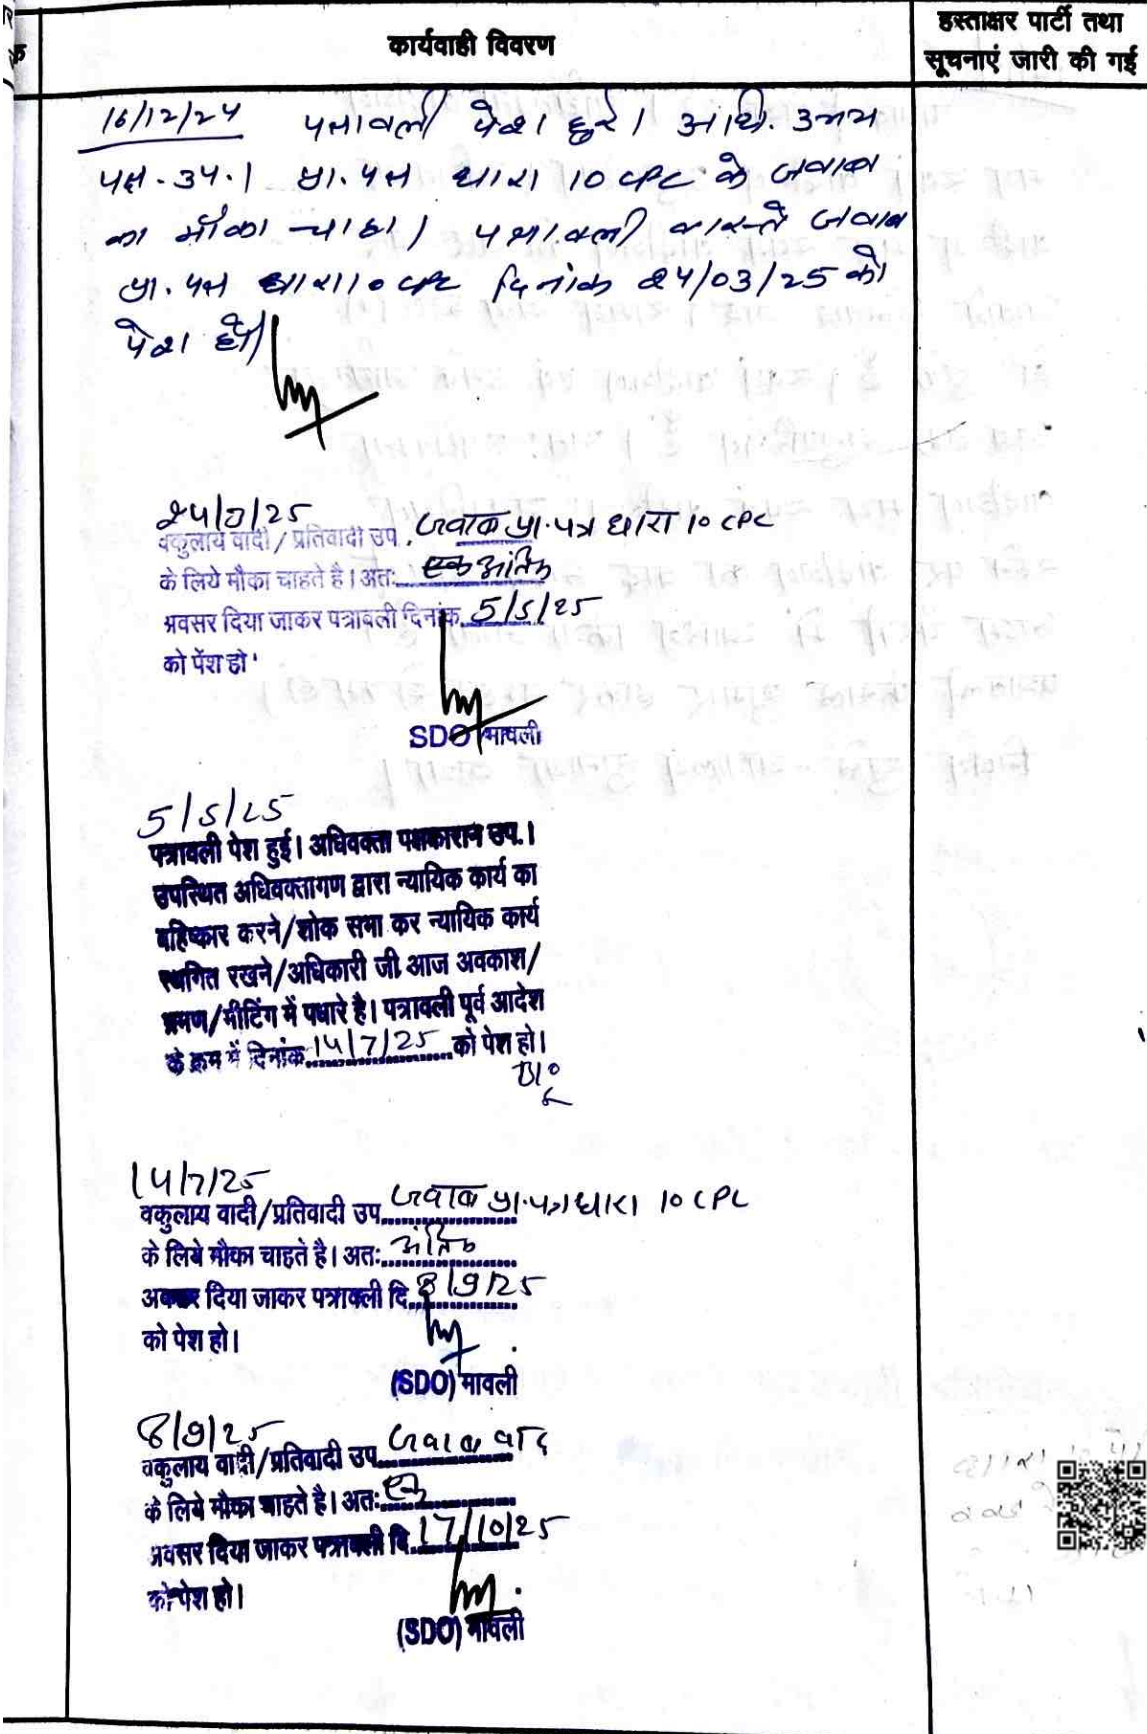 हस्ताक्षर पार्टी तथा
कार्यवाही विवरण
सूचनाएं जारी की गई
16/12/24 पत्रावली पेश हुई। अधि. उभय
पक्ष. उप.। प्रा. पत्र धारा 10 CPC के जवाब
का मौका चाहा। पत्रावली वास्ते जवाब
प्रा. पत्र धारा 10 CPC दिनांक 24/03/25 को
पेश हो।
24/3/25
वकुलाय वादी / प्रतिवादी उप. जवाब प्रा. पत्र धारा 10 CPC
के लिये मौका चाहते है। अतः एक अंतिम
अवसर दिया जाकर पत्रावली दिनांक 5/5/25
को पेंश हो
SDO मावली
5/5/25
पत्रावली पेश हुई। अधिवक्ता पक्षकारान उप.।
उपस्थित अधिवक्तागण द्वारा न्यायिक कार्य का
बहिष्कार करने/शोक सभा कर न्यायिक कार्य
स्थगित रखने/अधिकारी जी आज अवकाश/
भ्रमण/मीटिंग में पधारे है। पत्रावली पूर्व आदेश
के क्रम में दिनांक 14/7/25 को पेश हो।
14/7/25
वकुलाय वादी/प्रतिवादी उप. जवाब प्रा. पत्र धारा 10 CPC
के लिये मौका चाहते है। अतः अंतिम
अवसर दिया जाकर पत्रावली दि. 8/9/25
को पेश हो।
(SDO) मावली
8/9/25
वकुलाय वादी/प्रतिवादी उप. जवाब वाद
के लिये मौका चाहते है। अतः एक
अवसर दिया जाकर पत्रावली दि. 17/10/25
को पेश हो।
(SDO) मावली